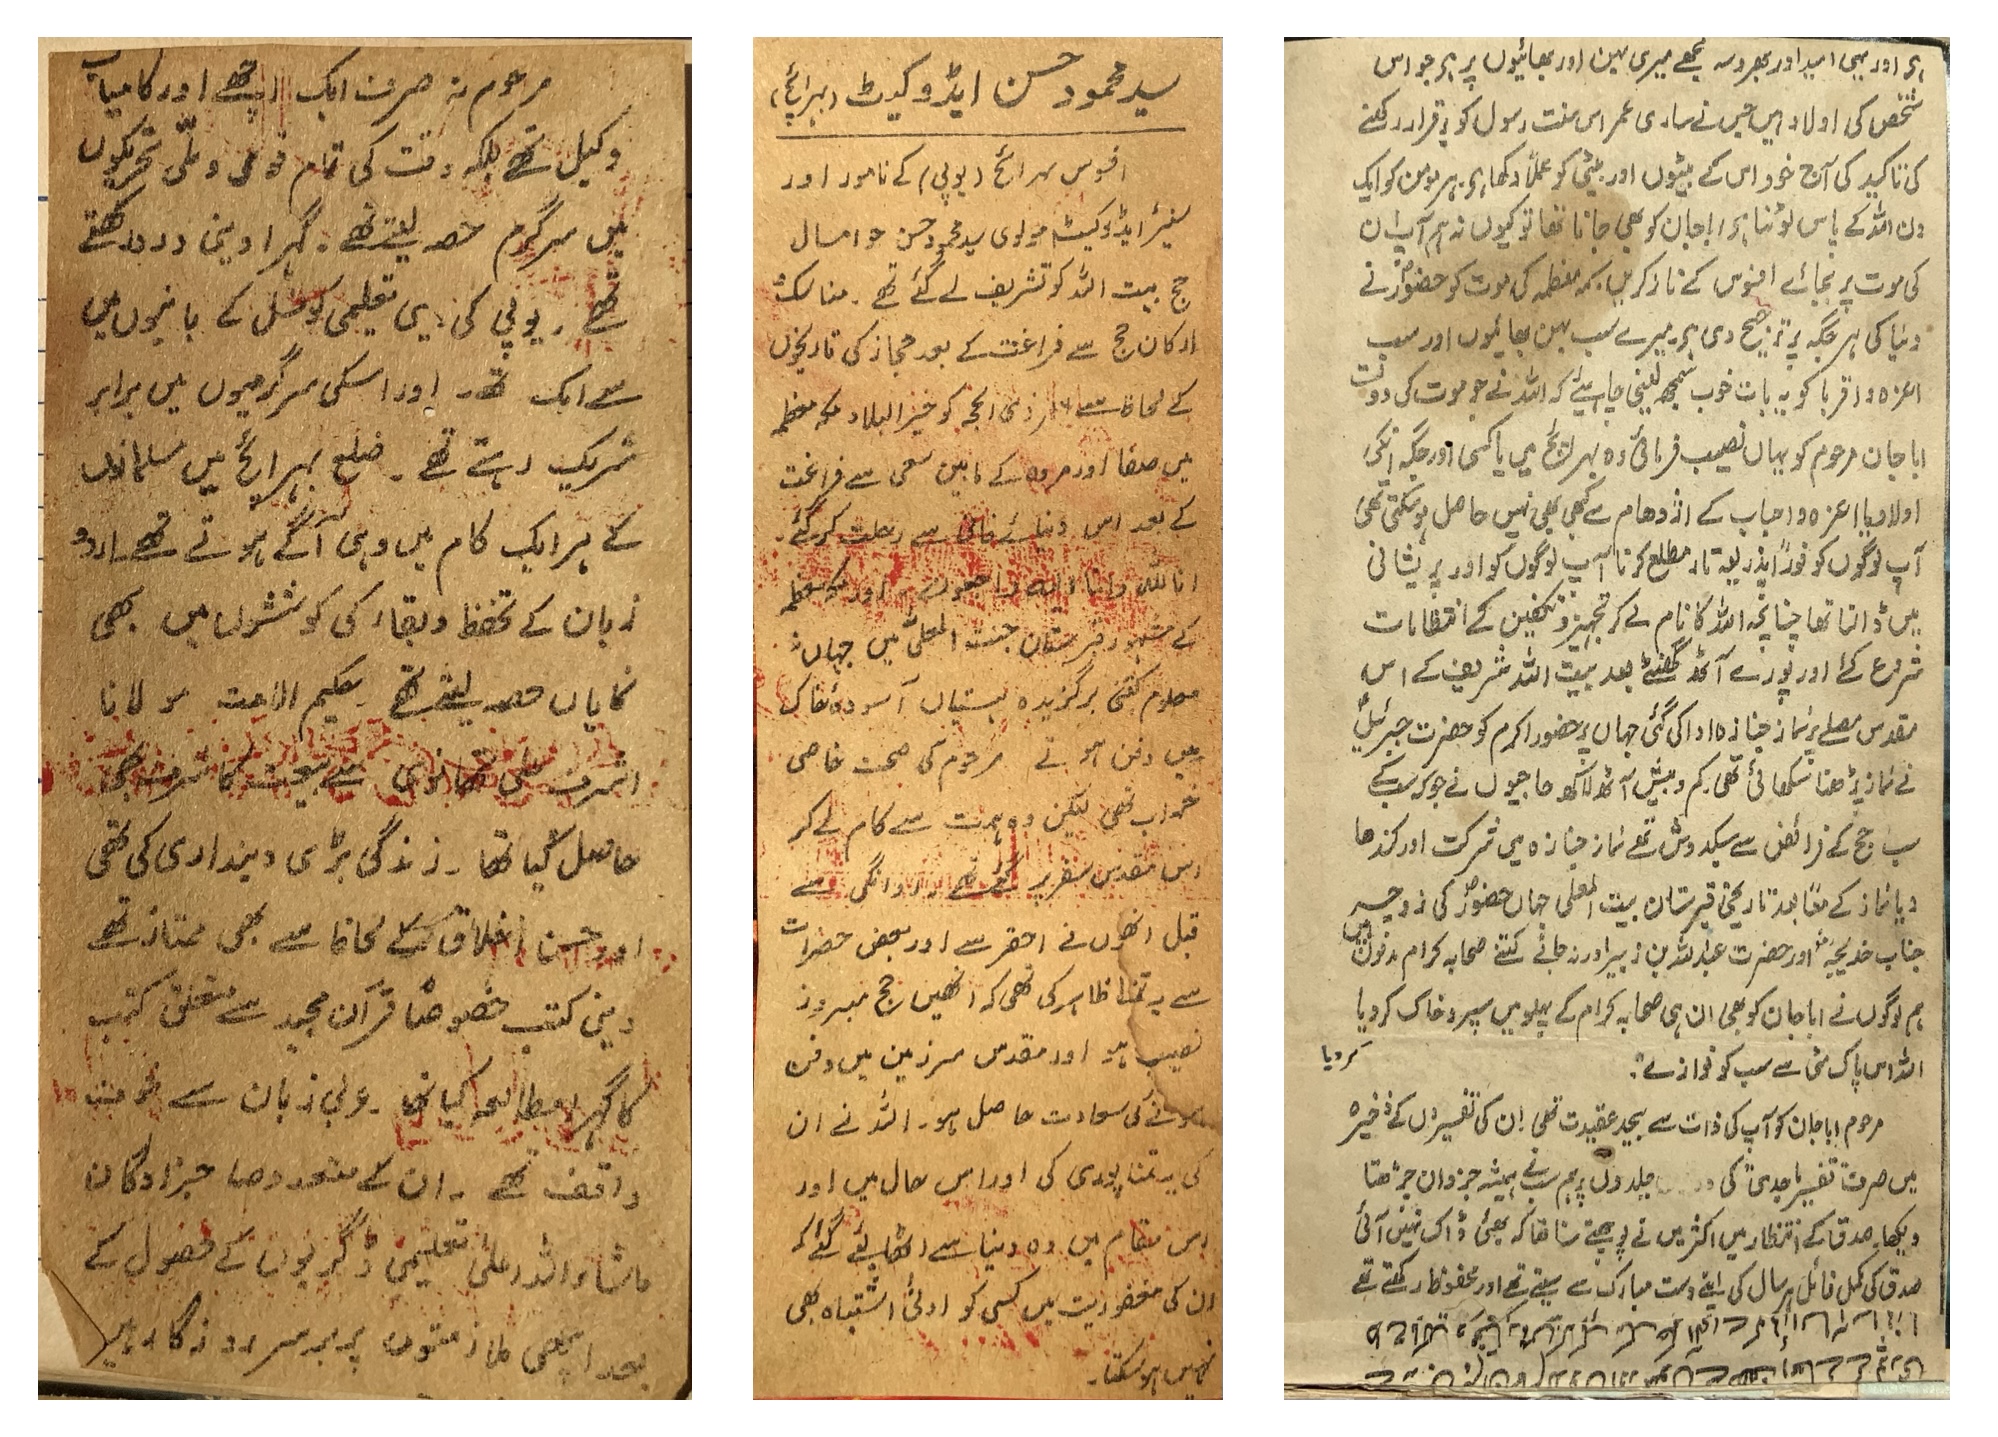 سید محمود حسن ایڈوکیٹ (بہرائچ)
افسوس بہرائچ (یوپی) کے نامور اور
سینئر ایڈوکیٹ مولوی سید محمود حسن جو امسال
حج بیت اللہ کو تشریف لے گئے تھے ۔ مناسک و
ارکان حج سے فراغت کے بعد حجاز کی تاریخوں
کے لحاظ سے ذی الحجہ کو خیر البلاد مکہ معظمہ
میں صفا اور مروہ کے مابین سعی سے فراغت
کے بعد اس دنیائے فانی سے رحلت کر گئے۔
انا للہ وانا الیہ راجعون ۔ اور مکہ معظمہ
کے مشہور قبرستان جنت المعلیٰ میں جہاں نہ
معلوم کتنی برگزیدہ ہستیاں آسودۂ خاک
ہیں دفن ہوئے مرحوم کی صحت خاصی
خراب تھی لیکن وہ ہمت سے کام لے کر
اس مقدس سفر پر گئے تھے روانگی سے
قبل انھوں نے احقر سے اور بعض حضرات
سے یہ تمنا ظاہر کی تھی کہ انھیں حج مبرور
نصیب ہو اور مقدس سرزمین میں دفن
ہونے کی سعادت حاصل ہو۔ اللہ نے ان
کی یہ تمنا پوری کی اور اس حال میں اور
اس مقام میں وہ دنیا سے اٹھا لئے گئے کہ
ان کی مغفوریت میں کسی کو ادنیٰ اشتباہ بھی
نہیں ہو سکتا۔
مرحوم نہ صرف ایک اچھے اور کامیاب
وکیل تھے بلکہ وقت کی تمام قومی و ملّی تحریکوں
میں سرگرم حصہ لیتے تھے ۔ گہرا دینی درد رکھتے
تھے ۔ یوپی کی دینی تعلیمی کونسل کے بانیوں میں
سے ایک تھے ۔ اور اسکی سرگرمیوں میں برابر
شریک رہتے تھے ۔ ضلع بہرائچ میں مسلمانوں
کے ہر ایک کام میں وہی آگے ہوتے تھے اردو
زبان کے تحفظ و بقاء کی کوششوں میں بھی
نمایاں حصہ لیتے تھے حکیم الامت مولانا
اشرف علی تھانوی سے بیعت کا شرف بھی
حاصل کیا تھا ۔ زندگی بڑی دینداری کی تھی
اور حسن اخلاق کے لحاظ سے بھی ممتاز تھے
دینی کتب خصوصًا قرآن مجید سے متعلق کتب
کا گہرا مطالعہ کیا تھا ۔ عربی زبان سے خوب
واقف تھے ۔ ان کے متعدد صاحبزادگان
ماشاء اللہ اعلیٰ تعلیمی ڈگریوں کے حصول کے
بعد اچھی ملازمتوں پر برسر روزگار ہیں
ہے اور یہی امید اور بھروسہ مجھے میری بہن اور بھائیوں پر ہے جو اس
شخص کی اولاد ہیں جس نے ساری عمر اس سنت رسول کو برقرار رکھنے
کی تاکید کی آج خود اس کے بیٹوں اور بیٹی کو عملًا دکھا ہے۔ ہر مومن کو ایک
دن اللہ کے پاس لوٹنا ہے ابا جان کو بھی جانا تھا تو کیوں نہ ہم آپ ان
کی موت پر بجائے افسوس کے ناز کریں مکہ معظمہ کی موت کو حضورؐ نے
دنیا کی ہر جگہ پر ترجیح دی ہے۔ میرے سب بہن بھائیوں اور سب
اعزہ و اقربا کو یہ بات خوب سمجھ لینی چاہیئے کہ اللہ نے جو موت کی دولت
ابا جان مرحوم کو یہاں نصیب فرمائی وہ بہرائچ میں یا کسی اور جگہ انکی
اولاد یا اعزہ و احباب کے اژدھام سے کبھی بھی نہیں حاصل ہو سکتی تھی
آپ لوگوں کو فورًا بذریعہ تار مطلع کرنا آپ لوگوں کو اور پریشانی
میں ڈالنا تھا چنانچہ اللہ کا نام لے کر تجہیز و تکفین کے انتظامات
شروع کئے اور پورے آٹھ گھنٹے بعد بیت اللہ شریف کے اس
مقدس مصلے پر نماز جنازہ ادا کی گئی جہاں پر حضور اکرم کو حضرت جبرئیلؑ
نے نماز پڑھنا سکھائی تھی۔ کم و بیش آٹھ لاکھ حاجیوں نے جو کہ سب کے
سب حج کے فرائض سے سبکدوش تھے نماز جنازہ میں شرکت اور کندھا
دیا نماز کے معًا بعد تاریخی قبرستان بیت المعلیٰ جہاں حضورؐ کی زوجہ
جناب خدیجہؓ اور حضرت عبداللہ بن زبیر اور نہ جانے کتنے صحابہ کرام مدفون ہیں
ہم لوگوں نے ابا جان کو بھی ان ہی صحابہ کرام کے پہلو میں سپرد خاک کر دیا
کر دیا
اللہ اس پاک مٹی سے سب کو نوازے۔
مرحوم ابا جان کو آپ کی ذات سے بیحد عقیدت تھی ان کی تفسیروں کے ذخیرہ
میں صرف تفسیر ماجدی کی جلدوں پر ہم سب نے ہمیشہ جزوان چڑھتا
دیکھا۔ صدق کے انتظار میں اکثر میں نے پوچھتے سنا تھا کہ بھئی ڈاک نہیں آئی
صدق کی مکمل فائل ہر سال کی اپنے دست مبارک سے سیتے تھے اور محفوظ رکھتے تھے